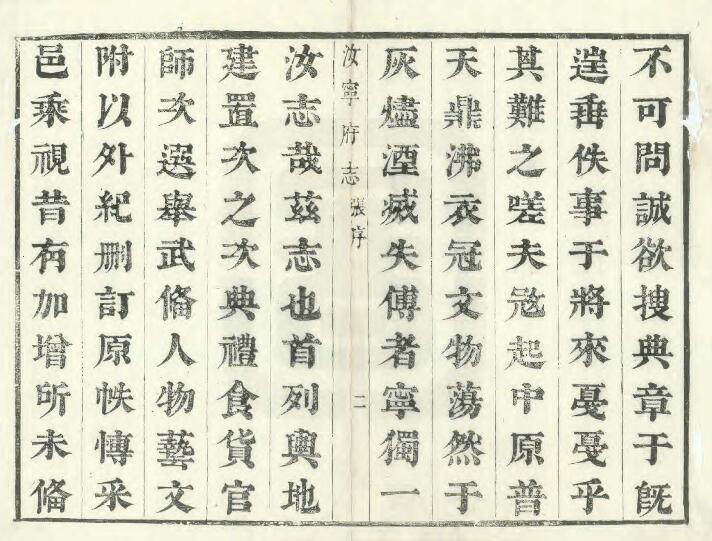 不可問誠欲搜典章于旣
逞垂佚事于將來戞戞乎
其難之嗟夫𡨥起中原普
天鼎沸衣冠文物蕩然于
灰燼湮滅失傳者寧獨一
汝寧府志 張序 二
汝志哉茲志也首列輿地
建置次之次典禮食貨官
師次選舉武俻人物藝文
附以外紀刪訂原帙博采
邑乘視昔有加增所未俻